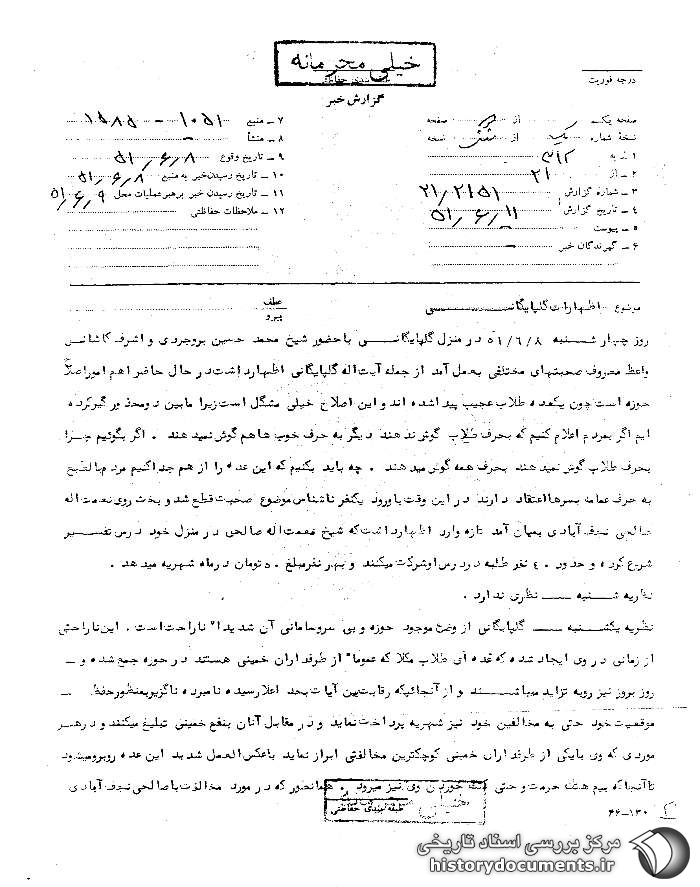 خیلی محرمانه
درجه فوریت
گزارش خبر
صفحه یک از صفحه
نسخهٔ شماره یک از شش نسخه
۱ ـ به ۳۱۲
۲ ـ از ۲۱
۳ ـ شماره گزارش ۲۱/۲۱۵۱
۴ ـ تاریخ گزارش ۵۱/۶/۱۱
۵ ـ پیوست
۶ ـ گیرندگان خبر
۷ ـ منبع ۱۰۵۱ - ۱۵۸۵
۸ ـ منشأ
۹ ـ تاریخ وقوع ۵۱/۶/۸
۱۰ ـ تاریخ رسیدن خبر به منبع ۵۱/۶/۸
۱۱ ـ تاریخ رسیدن خبر برهبر عملیات محل ۵۱/۶/۹
۱۲ ـ ملاحظات حفاظتی
موضوع اظهارات گلپایگانی
عطف
پیرو
روز چهار شنبه ۵۱/۶/۸ در منزل گلپایگانی با حضور شیخ محمد حسین بروجردی و اشرف کاشانی
واعظ معروف صحبتهای مختلفی بعمل آمد از جمله آیت اله گلپایگانی اظهار داشت در حال حاضر اهم امور اصلاح
حوزه است چون یکعده طلاب عجیب پیدا شده اند و این اصلاح خیلی مشگل است زیرا مابین دو محذور گیر کرده
ایم اگر بمردم اعلام کنیم که بحرف طلاب گوش ندهند دیگر به حرف خوب ها هم گوش نمیدهند . اگر بگوئیم چرا
بحرف طلاب گوش نمیدهند بحرف همه گوش میدهند . چه باید بکنیم که این عده را از هم جدا کنیم مردم بالطبع
به حرف عمامه بسرها اعتقاد دارند در این وقت با ورود یکنفر ناشناس موضوع صحبت قطع شد و بحث روی نعمت اله
صالحی نجف آبادی بمیان آمد تازه وارد اظهار داشت که شیخ نعمت اله صالحی در منزل خود درس تفسیر
شروع کرده و حدود ۴۰ نفر طلبه در درس او شرکت میکنند و بهر نفر مبلغ ۵۰ تومان در ماه شهریه میدهد .
نظریه شنبه ـ نظری ندارد .
نظریه یکشنبه ـ گلپایگانی از وضع موجود حوزه و بی سروسامانی آن شدیدا" ناراحت است . این ناراحتی
از زمانی در وی ایجاد شده که عده ای طلاب مکلا که عموما" از طرفداران خمینی هستند در حوزه جمع شده و ـ
روز بروز نیز رو به تزاید میباشند و از آنجائیکه رقابت بین آیات بحد اعلا رسیده نامبرده ناگزیر بمنظور حفظ ـ
موقعیت خود حتی به مخالفین خود نیز شهریه پرداخت نماید و در مقابل آنان بنفع خمینی تبلیغ میکنند و در هر
موردی که وی با یکی از طرفداران خمینی کوچکترین مخالفتی ابراز نماید با عکس العمل شدید این عده روبرو میشود
تا آنجا که بیم هتک حرمت و حتی کتک خوردن وی نیز میرود . همانطور که در مورد مخالفت با صالحی نجف آبادی
طبقه بندی حفاظتی
۱۳۰-۴۶
مرکز بررسی اسناد تاریخی
historydocuments.ir